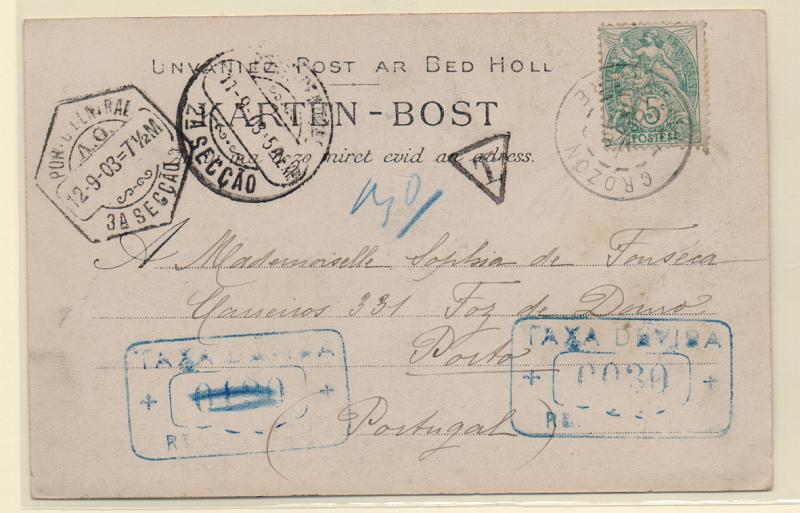 UNVANIEZ POST AR BED HOLL
KARTEN-BOST
miret evid an adress.
A.G.
12-9-03=7½M
3A SECÇÃO
11-9-03
2A SECÇÃO
T
5
POSTES
CROZON
A Mademoiselle Sophia de Fonseca
Carreiros 331 Foz do Douro
Porto
(Portugal)
TAXA DEVIDA
RE
TAXA DEVIDA
0030
RE